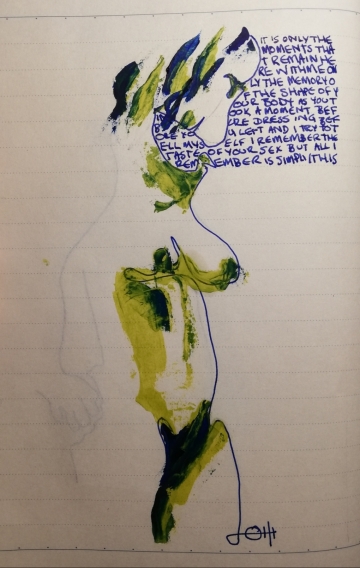 IT IS ONLY THE
MOMENTS THA
T REMAIN HE
RE WITH ME ON
LY THE MEMORY O
F THE SHAPE OF Y
OUR BODY AS YOU T
OOK A MOMENT BEF
ORE DRESSING BEF
ORE YOU LEFT AND I TRY TO T
ELL MYSELF I REMEMBER THE
TASTE OF YOUR SEX BUT ALL I
REMEMBER IS SIMPLY THIS